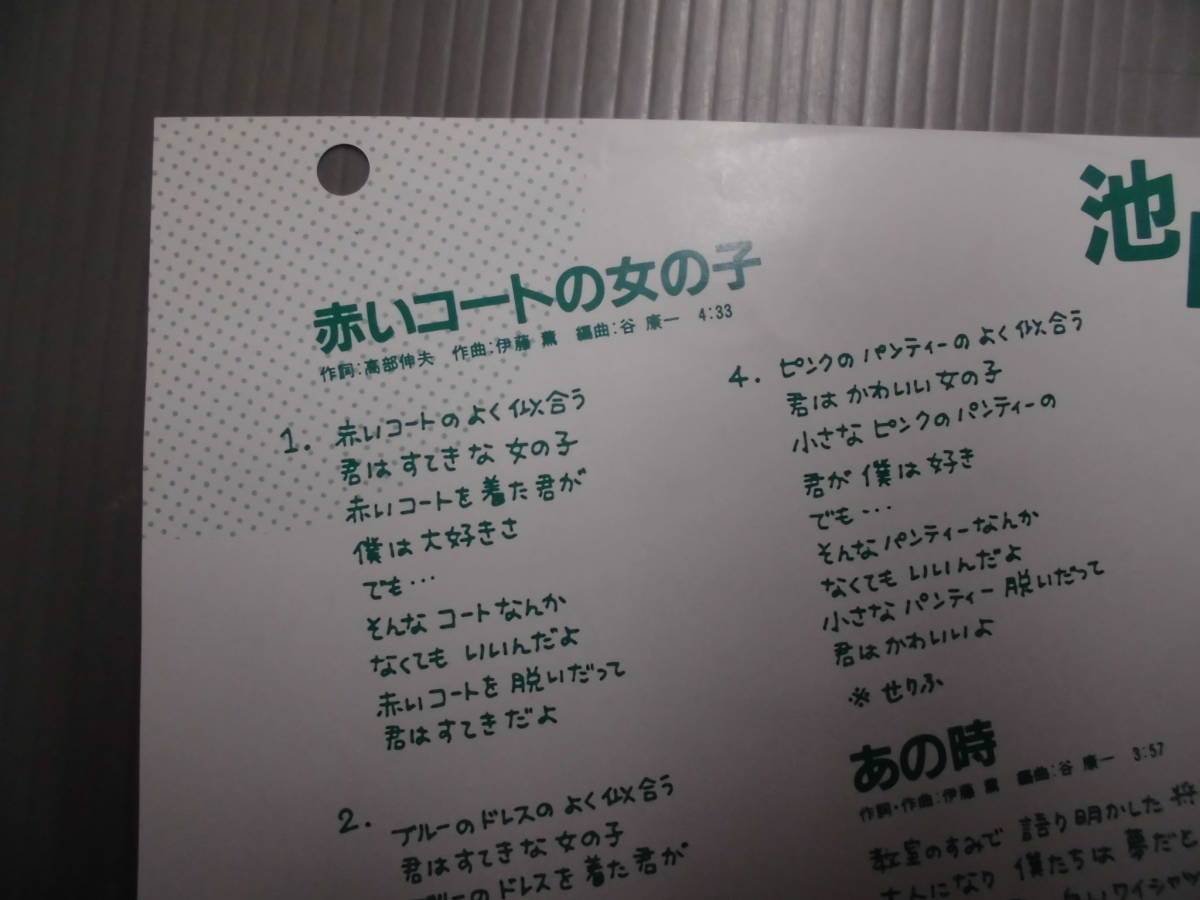 池
赤いコートの女の子
作詞:高部伸夫 作曲:伊藤 薫 編曲:谷 康一 4:33
1. 赤いコートのよく似合う
君は すてきな 女の子
赤いコートを着た君が
僕は大好きさ
でも…
そんな コートなんか
なくても いいんだよ
赤いコートを 脱いだって
君はすてきだよ
2. ブルーのドレスの よく似合う
君はすてきな女の子
のドレスを着た君が
4. ピンクの パンティーの よく似合う
君は かわいい 女の子
小さな ピンクの パンティーの
君が 僕は 好き
でも…
そんな パンティーなんか
なくても いいんだよ
小さな パンティー 脱いだって
君は かわいいよ
※ せりふ
あの時
作詞・作曲:伊藤 薫 編曲:谷 康一 3:57
教室のすみで 語り明かした 将
になり 僕たちは 夢だと
ワイシャツ